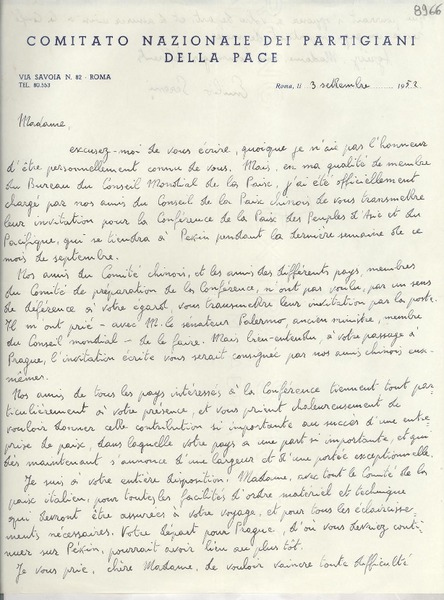 8966
COMITATO NAZIONALE DEI PARTIGIANI
DELLA PACE
VIA SAVOIA N. 82 - ROMA
TEL. 80.553
Roma, li 3 settembre 1952
Madame,
excusez-moi de vous écrire, quoique je n'aie pas l'honneur
d'être personnellement connu de vous. Mais, en ma qualité de membre
du Bureau du Conseil Mondial de la Paix, j'ai été officiellement
chargé par nos amis du Conseil de la Paix chinois de vous transmettre
leur invitation pour la Conférence de la Paix des Peuples d'Asie et du
Pacifique, qui se tiendra à Pékin pendant la dernière semaine de ce
mois de septembre.
Nos amis du Comité chinois, et les amis des différents pays, membres
du Comité de préparation de la Conférence, n'ont pas voulu, par un sens
de déférence à votre égard, vous transmettre leur invitation par la poste.
Il m'ont prié - avec M. le sénateur Palermo, ancien ministre, membre
du Conseil mondial - de le faire. Mais bien entendu, à votre passage à
Prague, l'invitation écrite vous serait consignée par nos amis chinois eux-
mêmes.
Nos amis de tous les pays intéressés à la Conférence tiennent tout par-
ticulièrement à votre présence, et vous prient chaleureusement de
vouloir donner cette contribution si importante au succès d'une entre-
prise de paix, dans laquelle votre pays a une part si importante, et qui
dès maintenant s'annonce d'une largeur et d'une portée exceptionnelle.
Je suis à votre entière disposition, Madame, avec tout le Comité de la
paix italien, pour toutes les facilités d'ordre matériel et technique
qui devront être assurées à votre voyage, et pour tous les éclaircisse-
ments nécessaires. Votre départ pour Prague, d'où vous devriez conti-
nuer sur Pékin, pourrait avoir lieu au plus tôt.
Je vous prie, chère Madame, de vouloir vaincre toute difficulté